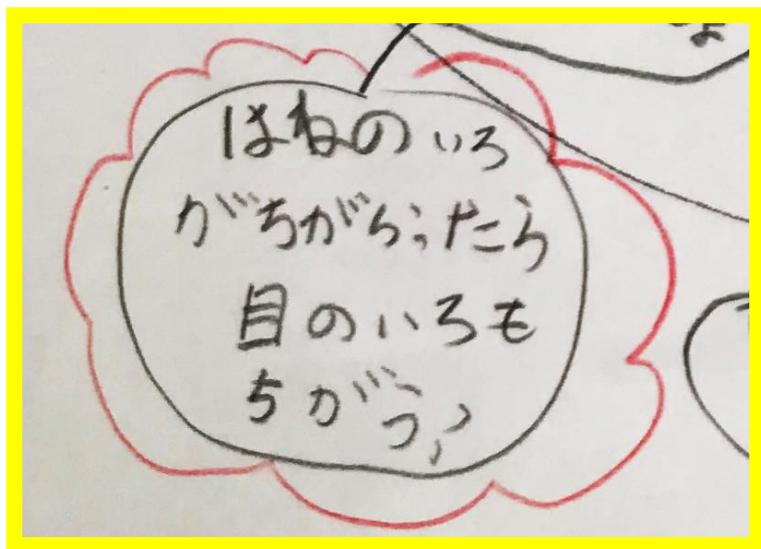 はねのいろ
がちがらったら
目のいろも
ちがう?